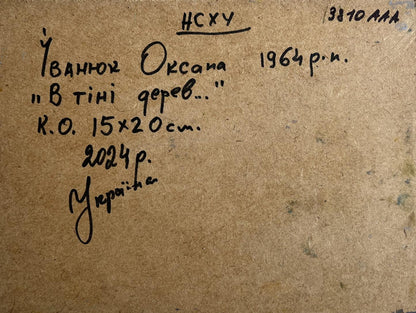 НСХУ
9810ААА
Іванюк Оксана 1964 р.н.
„В тіні дерев..."
К.О. 15х20 ст.
2024 р.
Україна